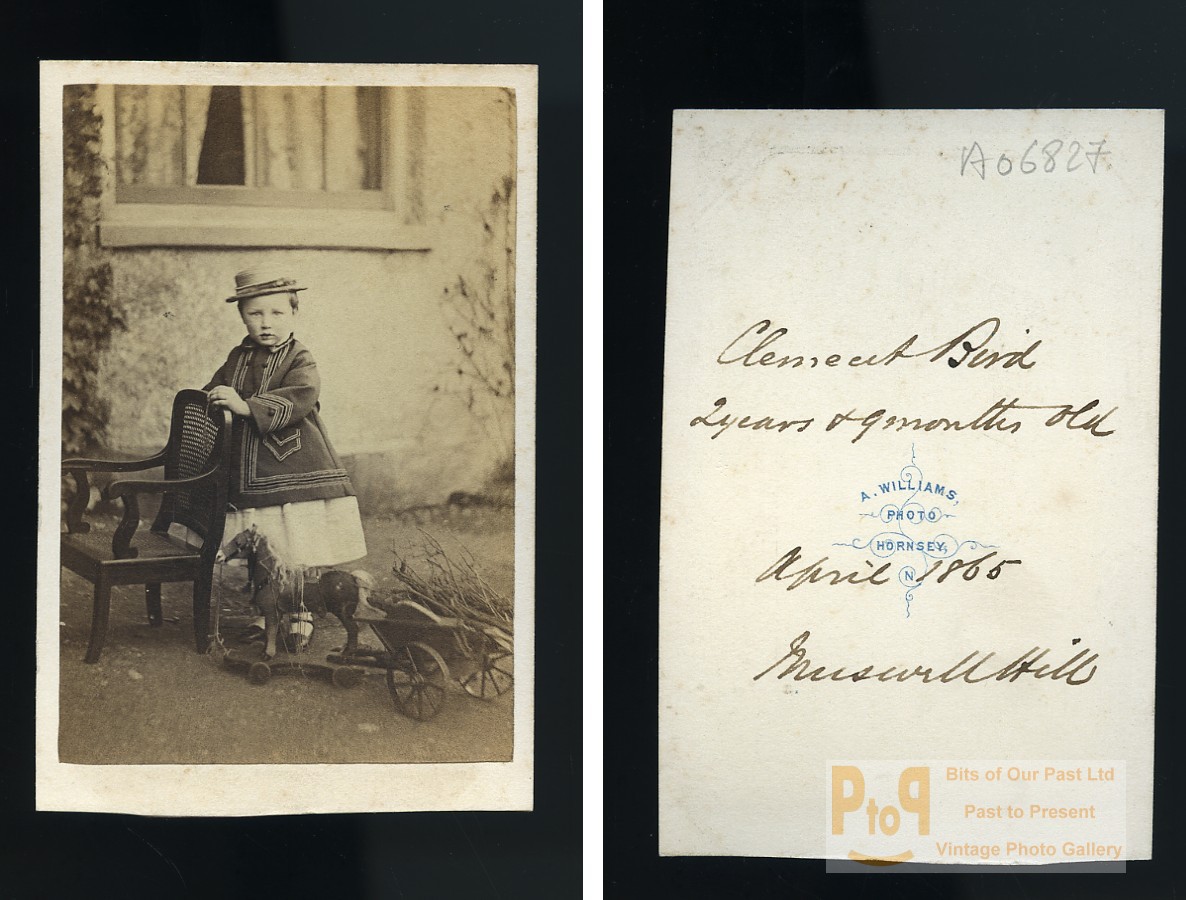 A06827
Clement Bird
2 years & 9 months old
A. WILLIAMS,
PHOTO
HORNSEY,
N
April 1865
Muswell Hill
PtoP
Bits of Our Past Ltd
Past to Present
Vintage Photo Gallery